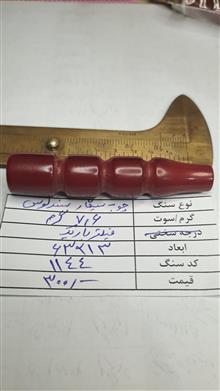 نوع سنگ چوب سیگار سندلوس
گرم/سوت ۷٫۶ گرم
درجه سختی فیلتر دار
ابعاد ۶۳×۱۳
کد سنگ ۱۱۴۴
قیمت ۳۰۰/-